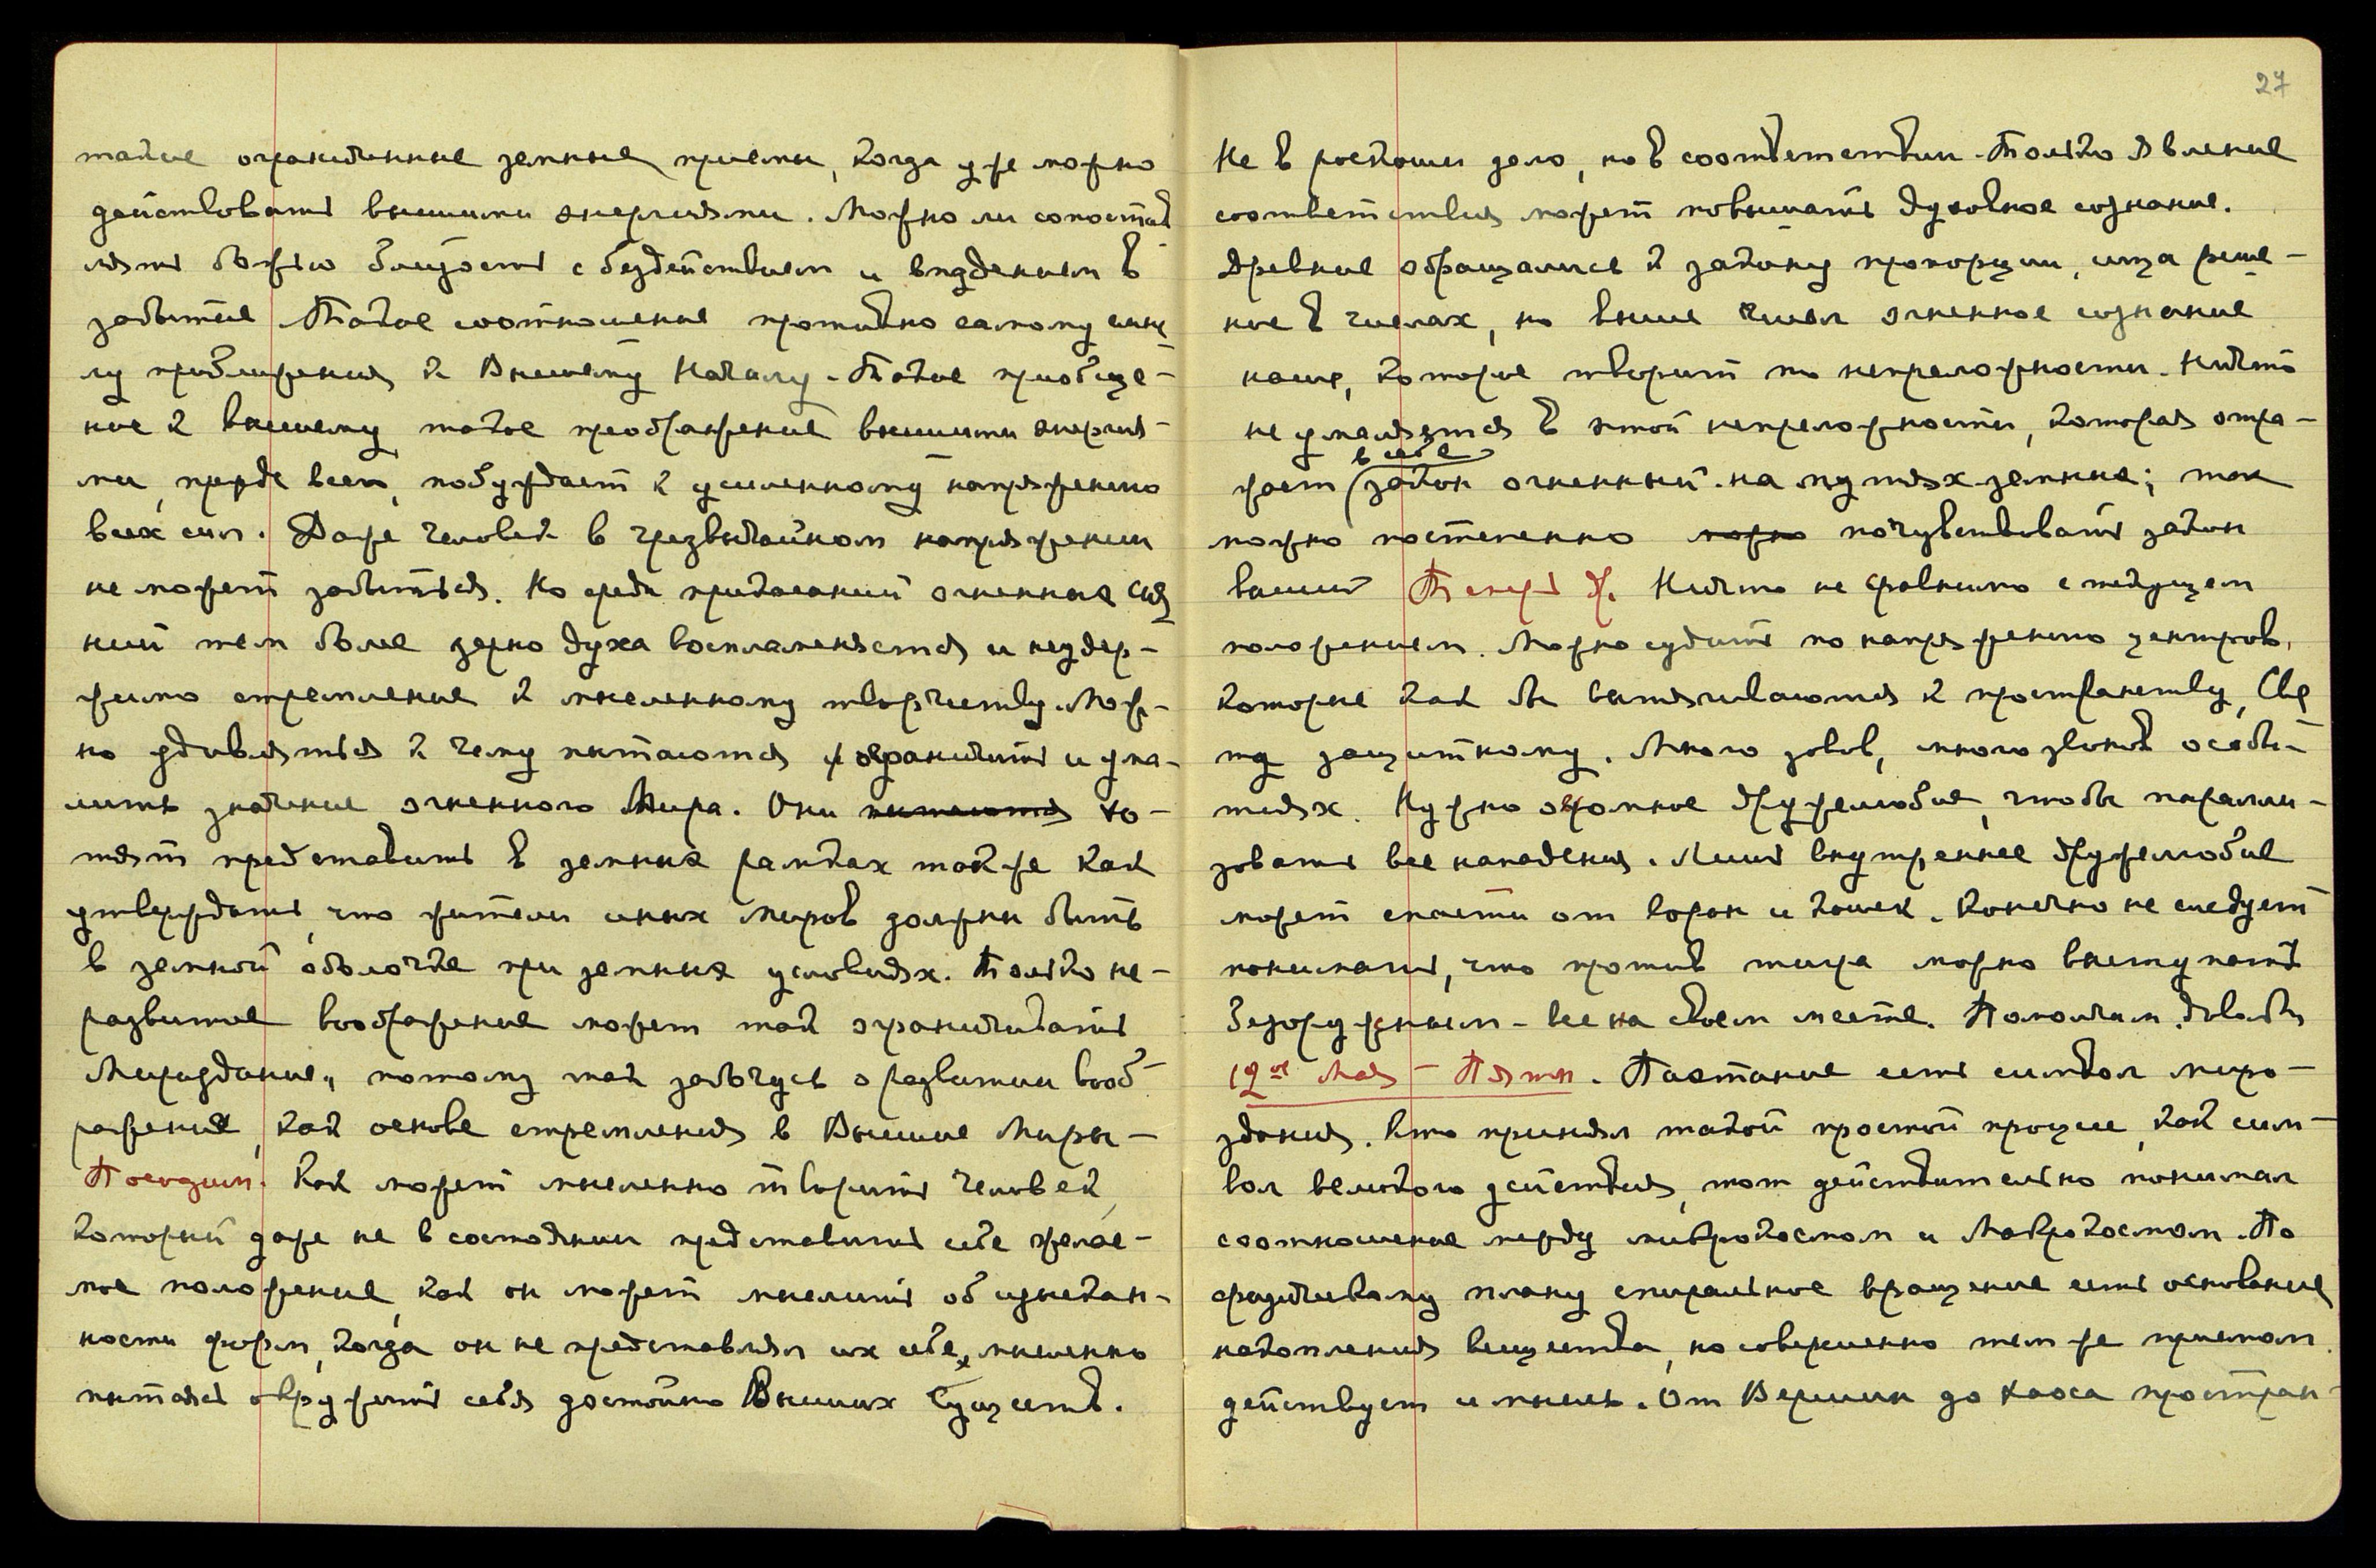 такие ограниченные земные приемы, когда уже можно
действовать высшими энергиями. Можно ли сопостав
лять божью близость с бездействием и впадением в
забытие Такое соотношение противно самому смыс
лу приближения к Высшему Началу. Такое приобще-
ние к высшему такое преображение высшими энергия-
ми, прежде всего, побуждает к усиленному напряжению
всех сил. Даже человек в чрезвычайном напряжении
не может забыться. Но среди прикасаний огненных сия
ний тем более зерно духа воспламеняется и неудер-
жимо стремление к мысленному творчеству. Мож-
но удивляться к чему пытаются ограничить и ума-
лить значение огненного Мира. Они пытаются хо-
тят представить в земных рамках так же как
утверждать, что жители иных миров должны быть
в земной оболочке при земных условиях. Только не-
развитое воображение может так ограничивать
Мироздание, потому так забочусь о развитии вооб-
ражения, как основе стремления в Высшие Миры-
Посидим. Как может мысленно творить человек,
который даже не в состоянии представить себе желае-
мое положение, как он может мыслить об изыскан-
ности форм, когда он не представлял их себе, мысленно
пытаясь окружить себя достойно Высших Существ.
27
Не в роскоши дело, но в соответствии. Только явление
соответствия может повышать духовное сознание.
Древние обращались к закону пропорции, ища реше-
ние в числах, но выше чисел огненное сознание
наше, которое творит по непреложности. Ничто
не умаляется в этой непреложности, которая отра-
в себе
жает закон огненный на путях земных; так
можно постепенно можно почувствовать закон
высший Теперь др. Ничто не сравнимо с текущем
положением. Можно судить по напряжению центров,
которые как бы вытягиваются к пространству, Све
ту защитному. Много зовов, много звонов о собы-
тиях. Нужно огромное дружелюбие, чтобы парали-
зовать все нападения. Лишь внутреннее дружелюбие
может спасти от ворон и кошек. Конечно не следует
понимать, что против тигра можно выступать
безоружным - все на своем месте. Помолчим. Довольно
12ое Мая - Пятн. Пахтание есть символ миро-
здания. Кто принял такой простой процесс, как сим-
вол великого действия, тот действительно понимал
соотношение между микрокосмом и Макрокосмом. По
физическому плану спиральное вращение есть основание
накопления вещества, но совершенно тем же приемом
действует и мысль. От Вершин до хаоса простран-